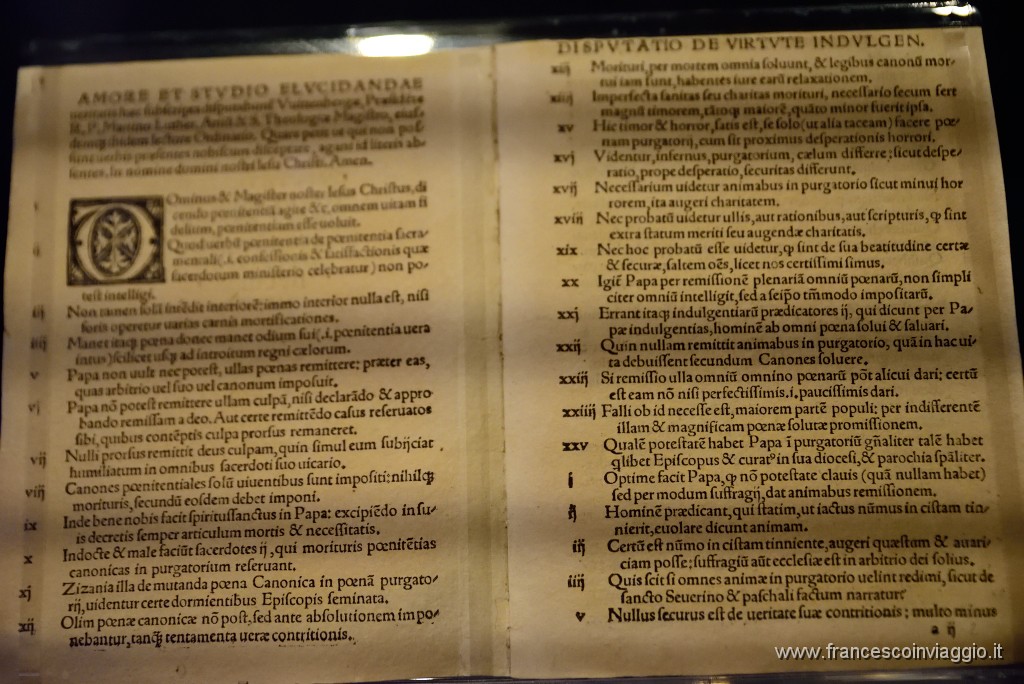 AMORE ET STVDIO ELVCIDANDAE
ueritatis hæc subscripta disputabunt Vuittenbergæ, Præsidente
R. P. Martino Luther, Artiū & S. Theologiæ Magistro, eius-
demq; ibidem lectore Ordinario. Quare petit ut qui non pos-
sunt uerbis præsentes nobiscum disceptare, agant id literis ab-
sentes. In nomine domini nostri Iesu Christi. Amen.
DOminus & Magister noster Iesus Christus, di
cendo pœnitentiā agite &c, omnem uitam fi
delium, pœnitentiam esse uoluit.
ij Quod uerbū pœnitentia de pœnitentia sacra-
mentali(.i. confessionis & satisfactionis quæ
sacerdotum ministerio celebratur) non po-
test intelligi.
iij Non tamen solā intēdit interiorē: immo interior nulla est, nisi
foris operetur uarias carnis mortificationes.
iiij Manet itaq; pœna donec manet odium sui(.i. pœnitentia uera
intus) scilicet usq; ad introitum regni cælorum.
v Papa non uult nec potest, ullas pœnas remittere: præter eas,
quas arbitrio uel suo uel canonum imposuit.
vj Papa nō potest remittere ullam culpā, nisi declarādo & appro-
bando remissam a deo. Aut certe remittēdo casus reseruatos
sibi, quibus contēptis culpa prorsus remaneret.
vij Nulli prorsus remittit deus culpam, quin simul eum subijciat
humiliatum in omnibus sacerdoti suo uicario.
viij Canones pœnitentiales solū uiuentibus sunt impositi: nihilq;
morituris, secundū eosdem debet imponi.
ix Inde bene nobis facit spiritussanctus in Papa: excipiēdo in su-
is decretis semper articulum mortis & necessitatis.
x Indocte & male faciūt sacerdotes ij, qui morituris pœnitētias
canonicas in purgatorium reseruant.
xj Zizania illa de mutanda pœna Canonica in pœnā purgato-
rij, uidentur certe dormientibus Episcopis seminata.
xij Olim pœnæ canonicæ nō post, sed ante absolutionem impo-
nebantur, tanq̄ tentamenta ueræ contritionis.
DISPVTATIO DE VIRTVTE INDVLGEN.
xiij Morituri, per mortem omnia soluunt, & legibus canonū mor-
tui iam sunt, habentes iure earū relaxationem.
xiiij Imperfecta sanitas seu charitas morituri, necessario secum fert
magnū timorem, tātoq; maiorē, quāto minor fuerit ipsa.
xv Hic timor & horror, satis est, se solo (ut alia taceam) facere pœ-
nam purgatorij, cum sit proximus desperationis horrori.
xvj Videntur, infernus, purgatorium, cælum differre: sicut despe-
ratio, prope desperatio, securitas differunt.
xvij Necessarium uidetur animabus in purgatorio sicut minui hor
rorem, ita augeri charitatem.
xviij Nec probatū uidetur ullis, aut rationibus, aut scripturis, q̄ sint
extra statum meriti seu augendæ charitatis.
xix Nec hoc probatū esse uidetur, q̄ sint de sua beatitudine certæ
& securæ, saltem oēs, licet nos certissimi simus.
xx Igit̄ Papa per remissionē plenariā omniū pœnarū, non simpli
citer omniū intelligit, sed a seipō tm̄modo impositarū.
xxj Errant itaq; indulgentiarū prædicatores ij, qui dicunt per Pa-
pæ indulgentias, hominē ab omni pœna solui & saluari.
xxij Quin nullam remittit animabus in purgatorio, quā in hac ui-
ta debuissent secundum Canones soluere.
xxiij Si remissio ulla omniū omnino pœnarū pōt alicui dari: certū
est eam nō nisi perfectissimis .i. paucissimis dari.
xxiiij Falli ob id necesse est, maiorem partē populi: per indifferentē
illam & magnificam pœnæ solutæ promissionem.
xxv Qualē potestatē habet Papa ī purgatoriū gn̄aliter talē habet
q̄libet Episcopus & curatꝰ in sua diocesi, & parochia sp̄aliter.
i Optime facit Papa, q̄ nō potestate clauis (quā nullam habet)
sed per modum suffragij, dat animabus remissionem.
ij Hominē prædicant, qui statim, ut iactus nūmus in cistam tin-
nierit, euolare dicunt animam.
iij Certū est nūmo in cistam tinniente, augeri quæstum & auari-
ciam posse: suffragiū aūt ecclesiæ est in arbitrio dei solius.
iiij Quis scit si omnes animæ in purgatorio uelint redimi, sicut de
sancto Seuerino & paschali factum narratur
v Nullus securus est de ueritate suæ contritionis: multo minus
a ij
www.francescoinviaggio.it